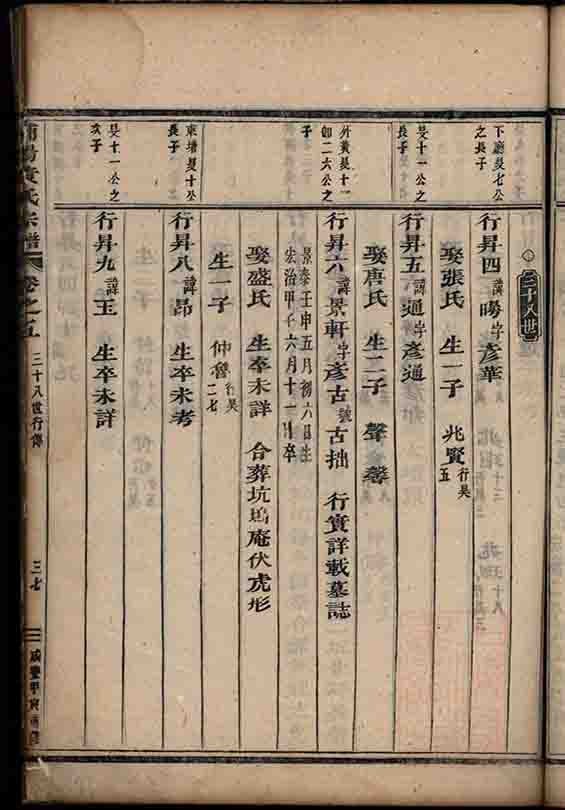 三十八世
下廳旻七公
之長子
行昇四諱暘字彥華
娶張氏 生一子 兆賢行昊五
旻十一公之
長子
行昇五諱通字彥通
娶唐氏 生二子 聲 馨
外黃旻十一
卽二六公之
子
行昇六諱景軒字彥古號古拙 行實詳載墓誌
景泰壬申五月初六日生
宏治甲子六月十一日卒
娶盛氏 生卒未詳 合葬坑塢庵伏虎形
生一子 仲魯行昊二七
東塘旻十公
長子
行昇八諱昂 生卒未考
旻十一公之
次子
行昇九諱玉 生卒未詳
黃氏宗譜 卷之五 三十八世行傳 三七 咸豐甲寅重修